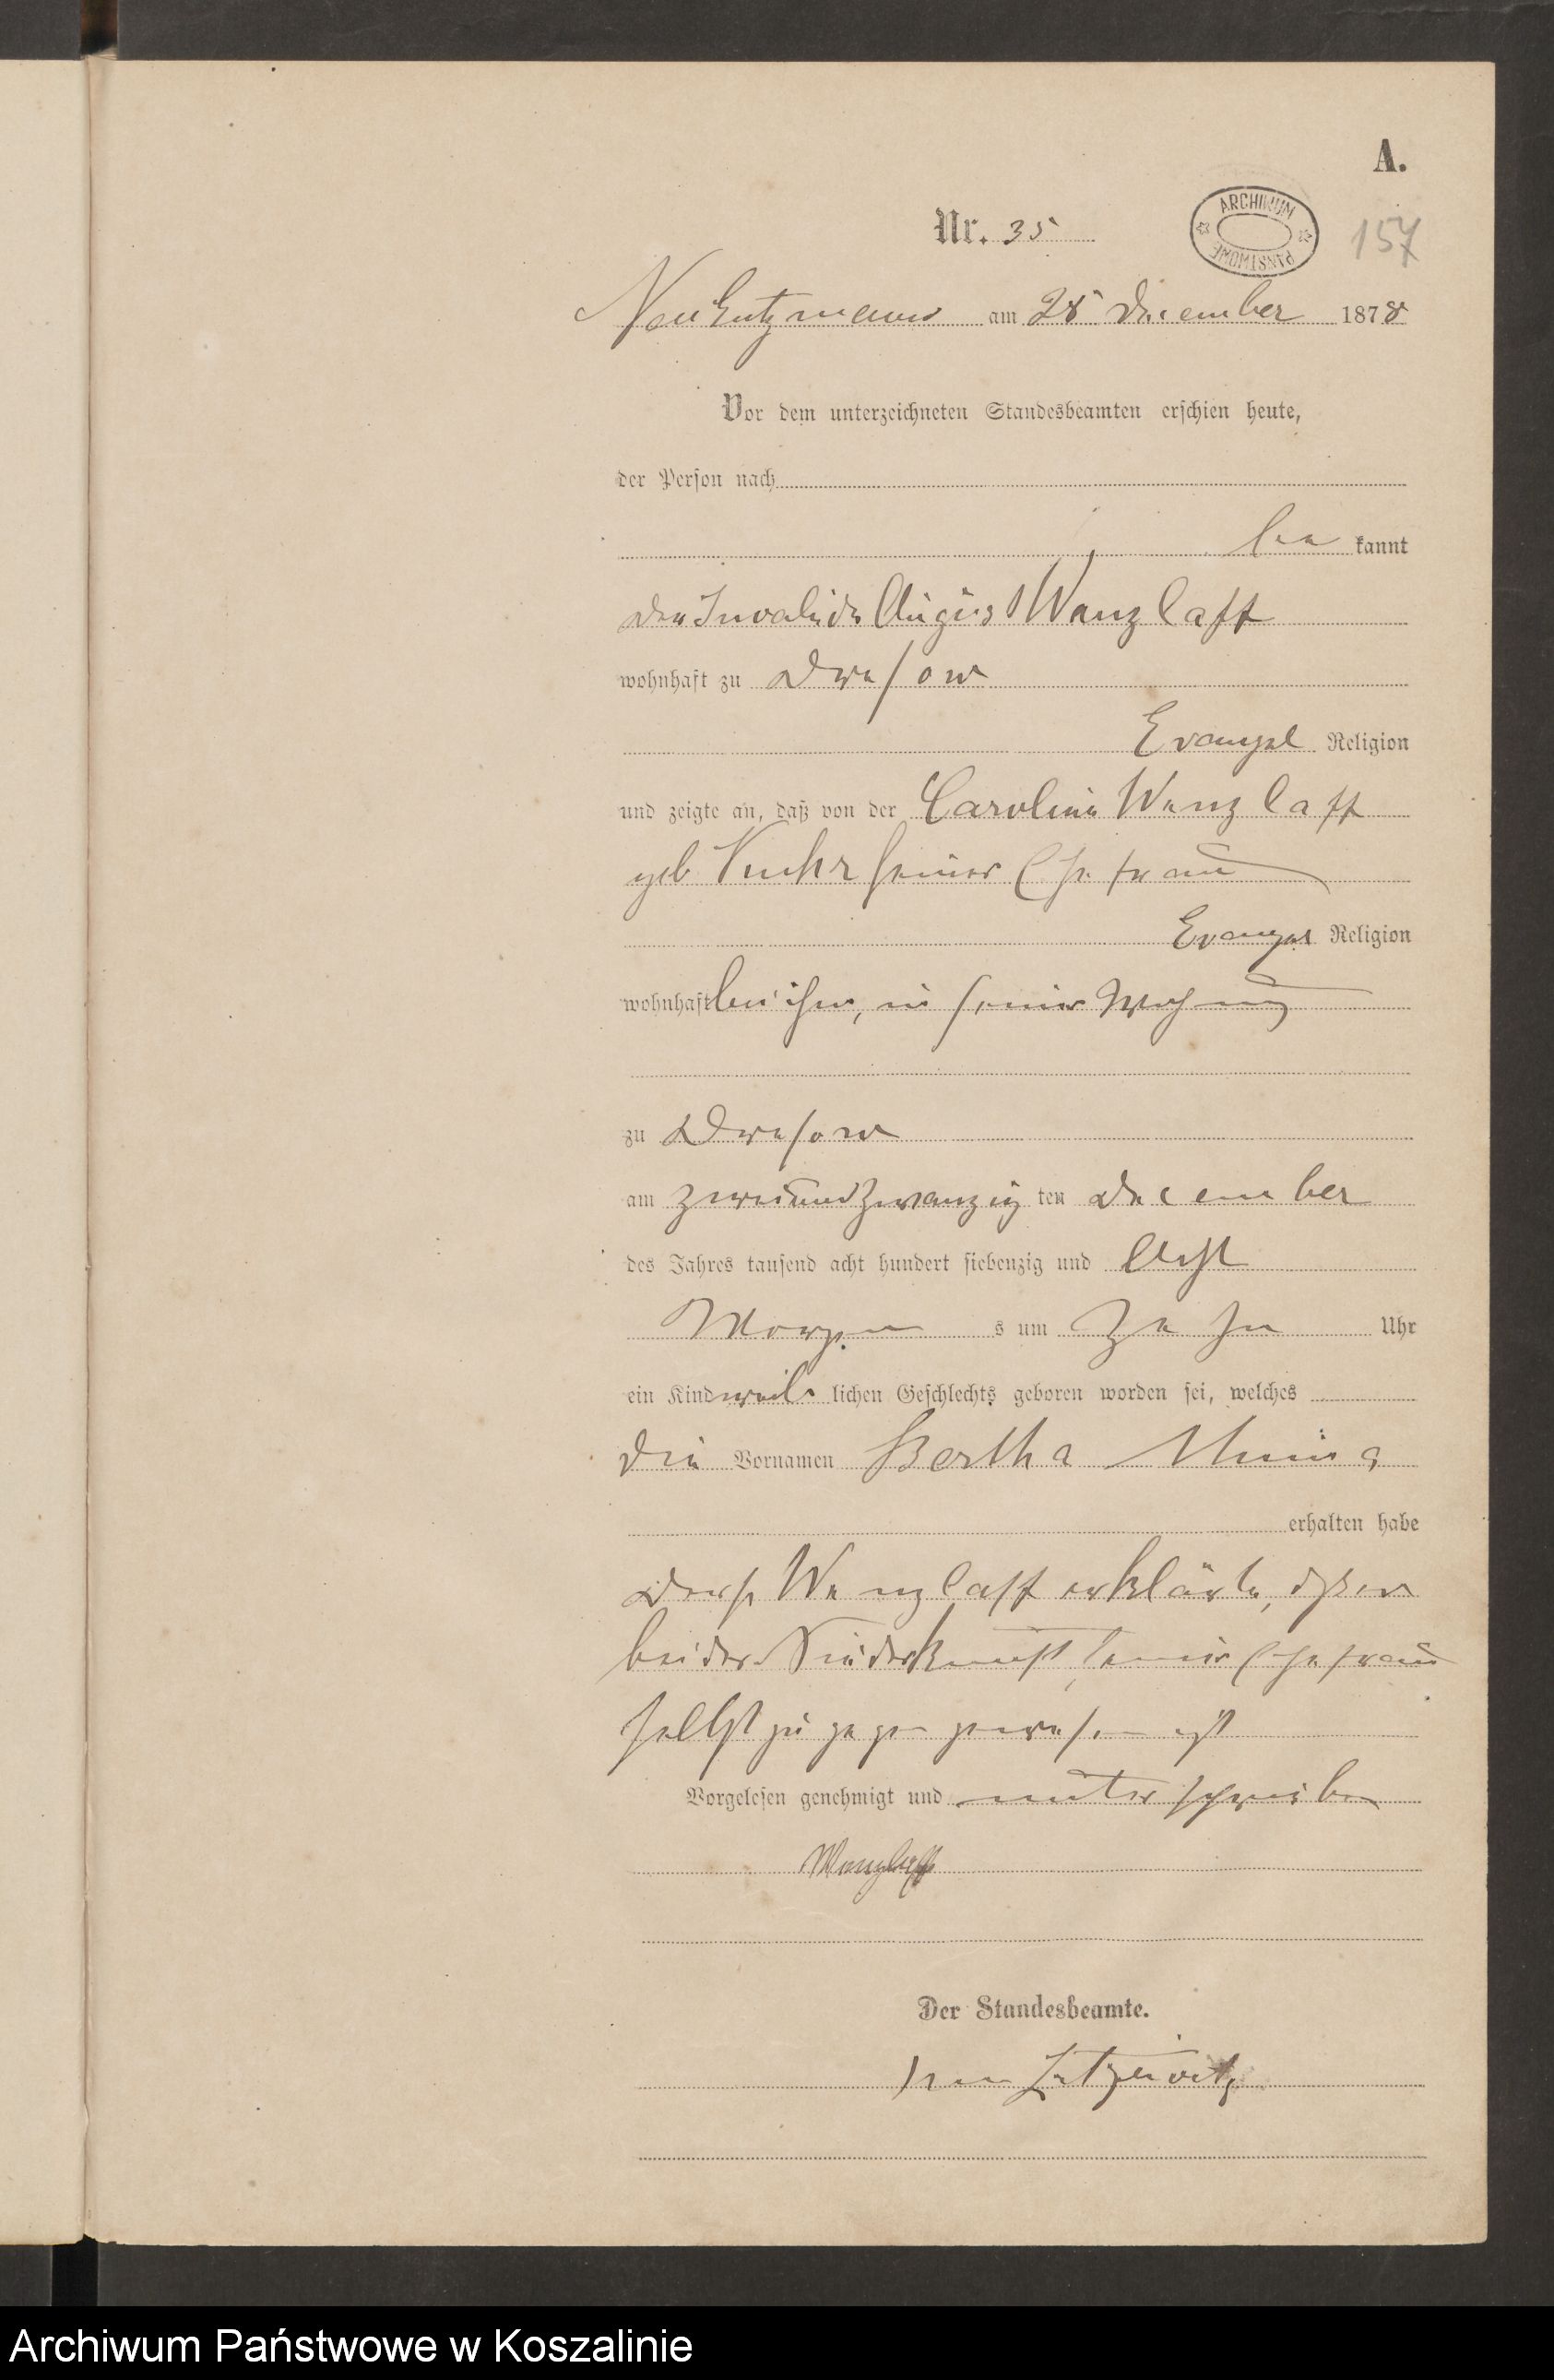 A.
Nr. 35
ARCHIWUM PAŃSTWOWE
157
am 28 December 1878
Vor dem unterzeichneten Standesbeamten erschien heute,
der Person nach
be kannt
der Invalide August Wenzlaff
wohnhaft zu Dresow
Evangel Religion
und zeigte an, daß von der Caroline Wenzlaff
geb seiner Ehefrau
Evangel Religion
wohnhaft bei ihm, in seiner Wohnung
zu Dresow
am zweiundzwanzig ten December
des Jahres tausend acht hundert siebenzig und Acht
Morgen s um Zehn Uhr
ein Kind weib lichen Geschlechts geboren worden sei, welches
die Vornamen Bertha
erhalten habe
Wenzlaff erklärte, daß er
bei der Niederkunft seiner Ehefrau
selbst zugegen gewesen ist
Vorgelesen genehmigt und unterschrieben
Wenzlaff
Der Standesbeamte.
von Zitzewitz
Archiwum Państwowe w Koszalinie